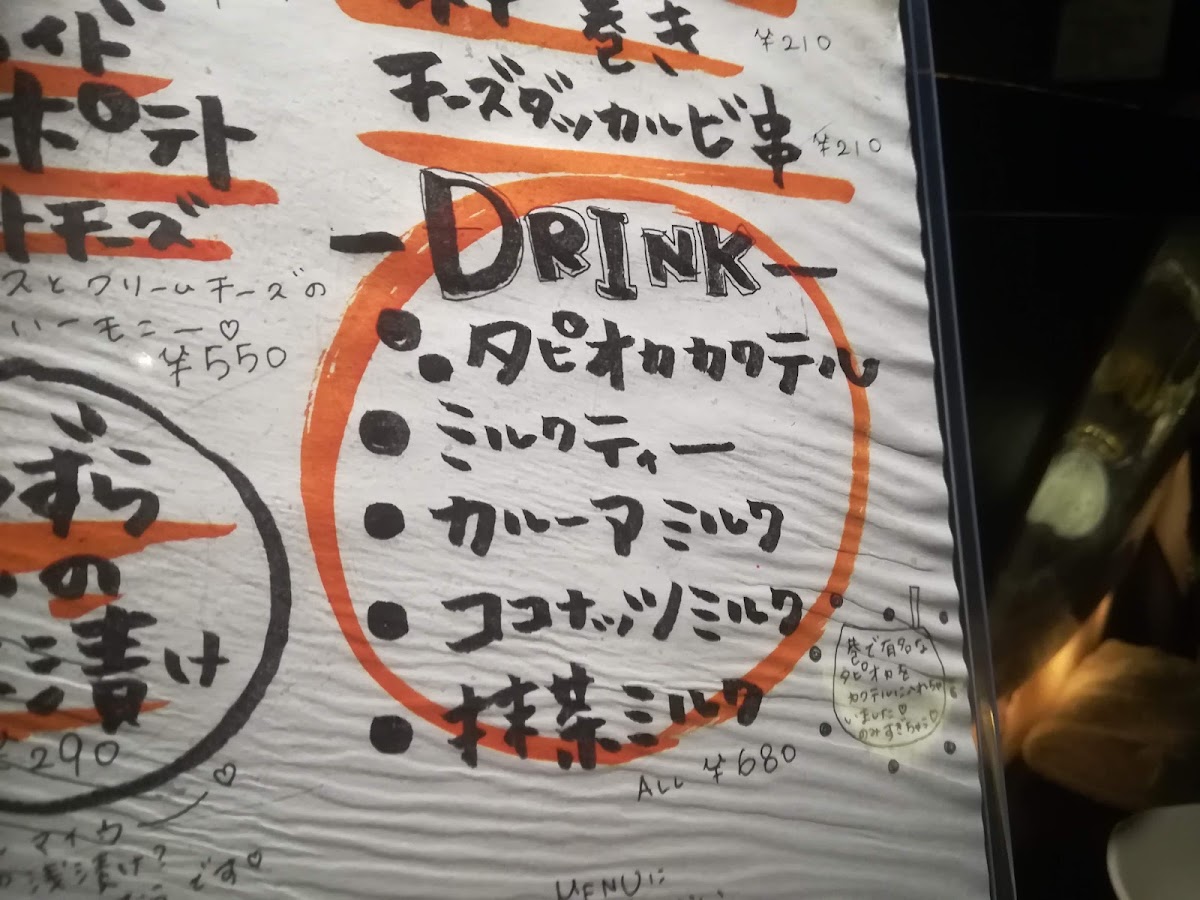 ポテト
トモーズ
スとクリームチーズの
ハーモニー♡
¥550
うずら
の
漬け
¥290
マイウ
浅漬け?
です♡
巻き ¥210
チーズダッカルビ串 ¥210
-DRINK-
タピオカカクテル
●ミルクティー
●カルーアミルク
●ココナッツミルク
●抹茶ミルク
ALL ¥680
巷で有名な
タピオカを
カクテルに入れちゃ
いました♡
のみすぎちゅうい♡
MENUに